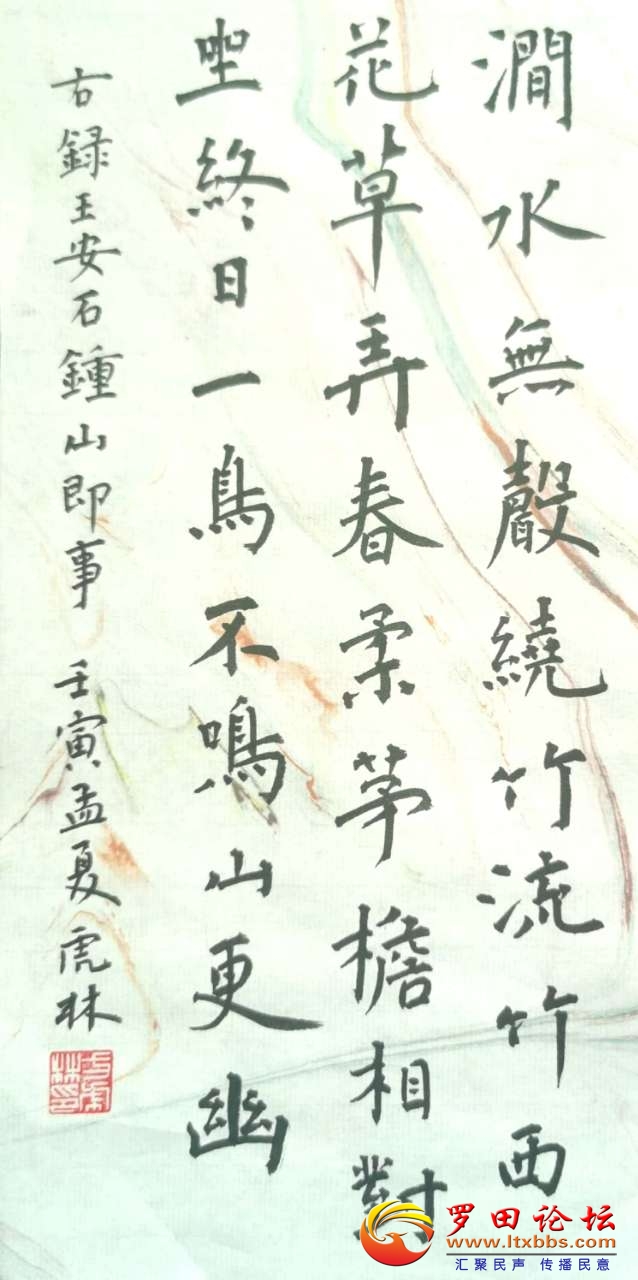 澗水無聲繞竹流竹西
花草弄春柔茅檐相對
坐終日一鳥不鳴山更幽
右録王安石鍾山即事 壬寅孟夏虎林
罗田论坛
www.ltxbbs.com
汇聚民声 传播民意